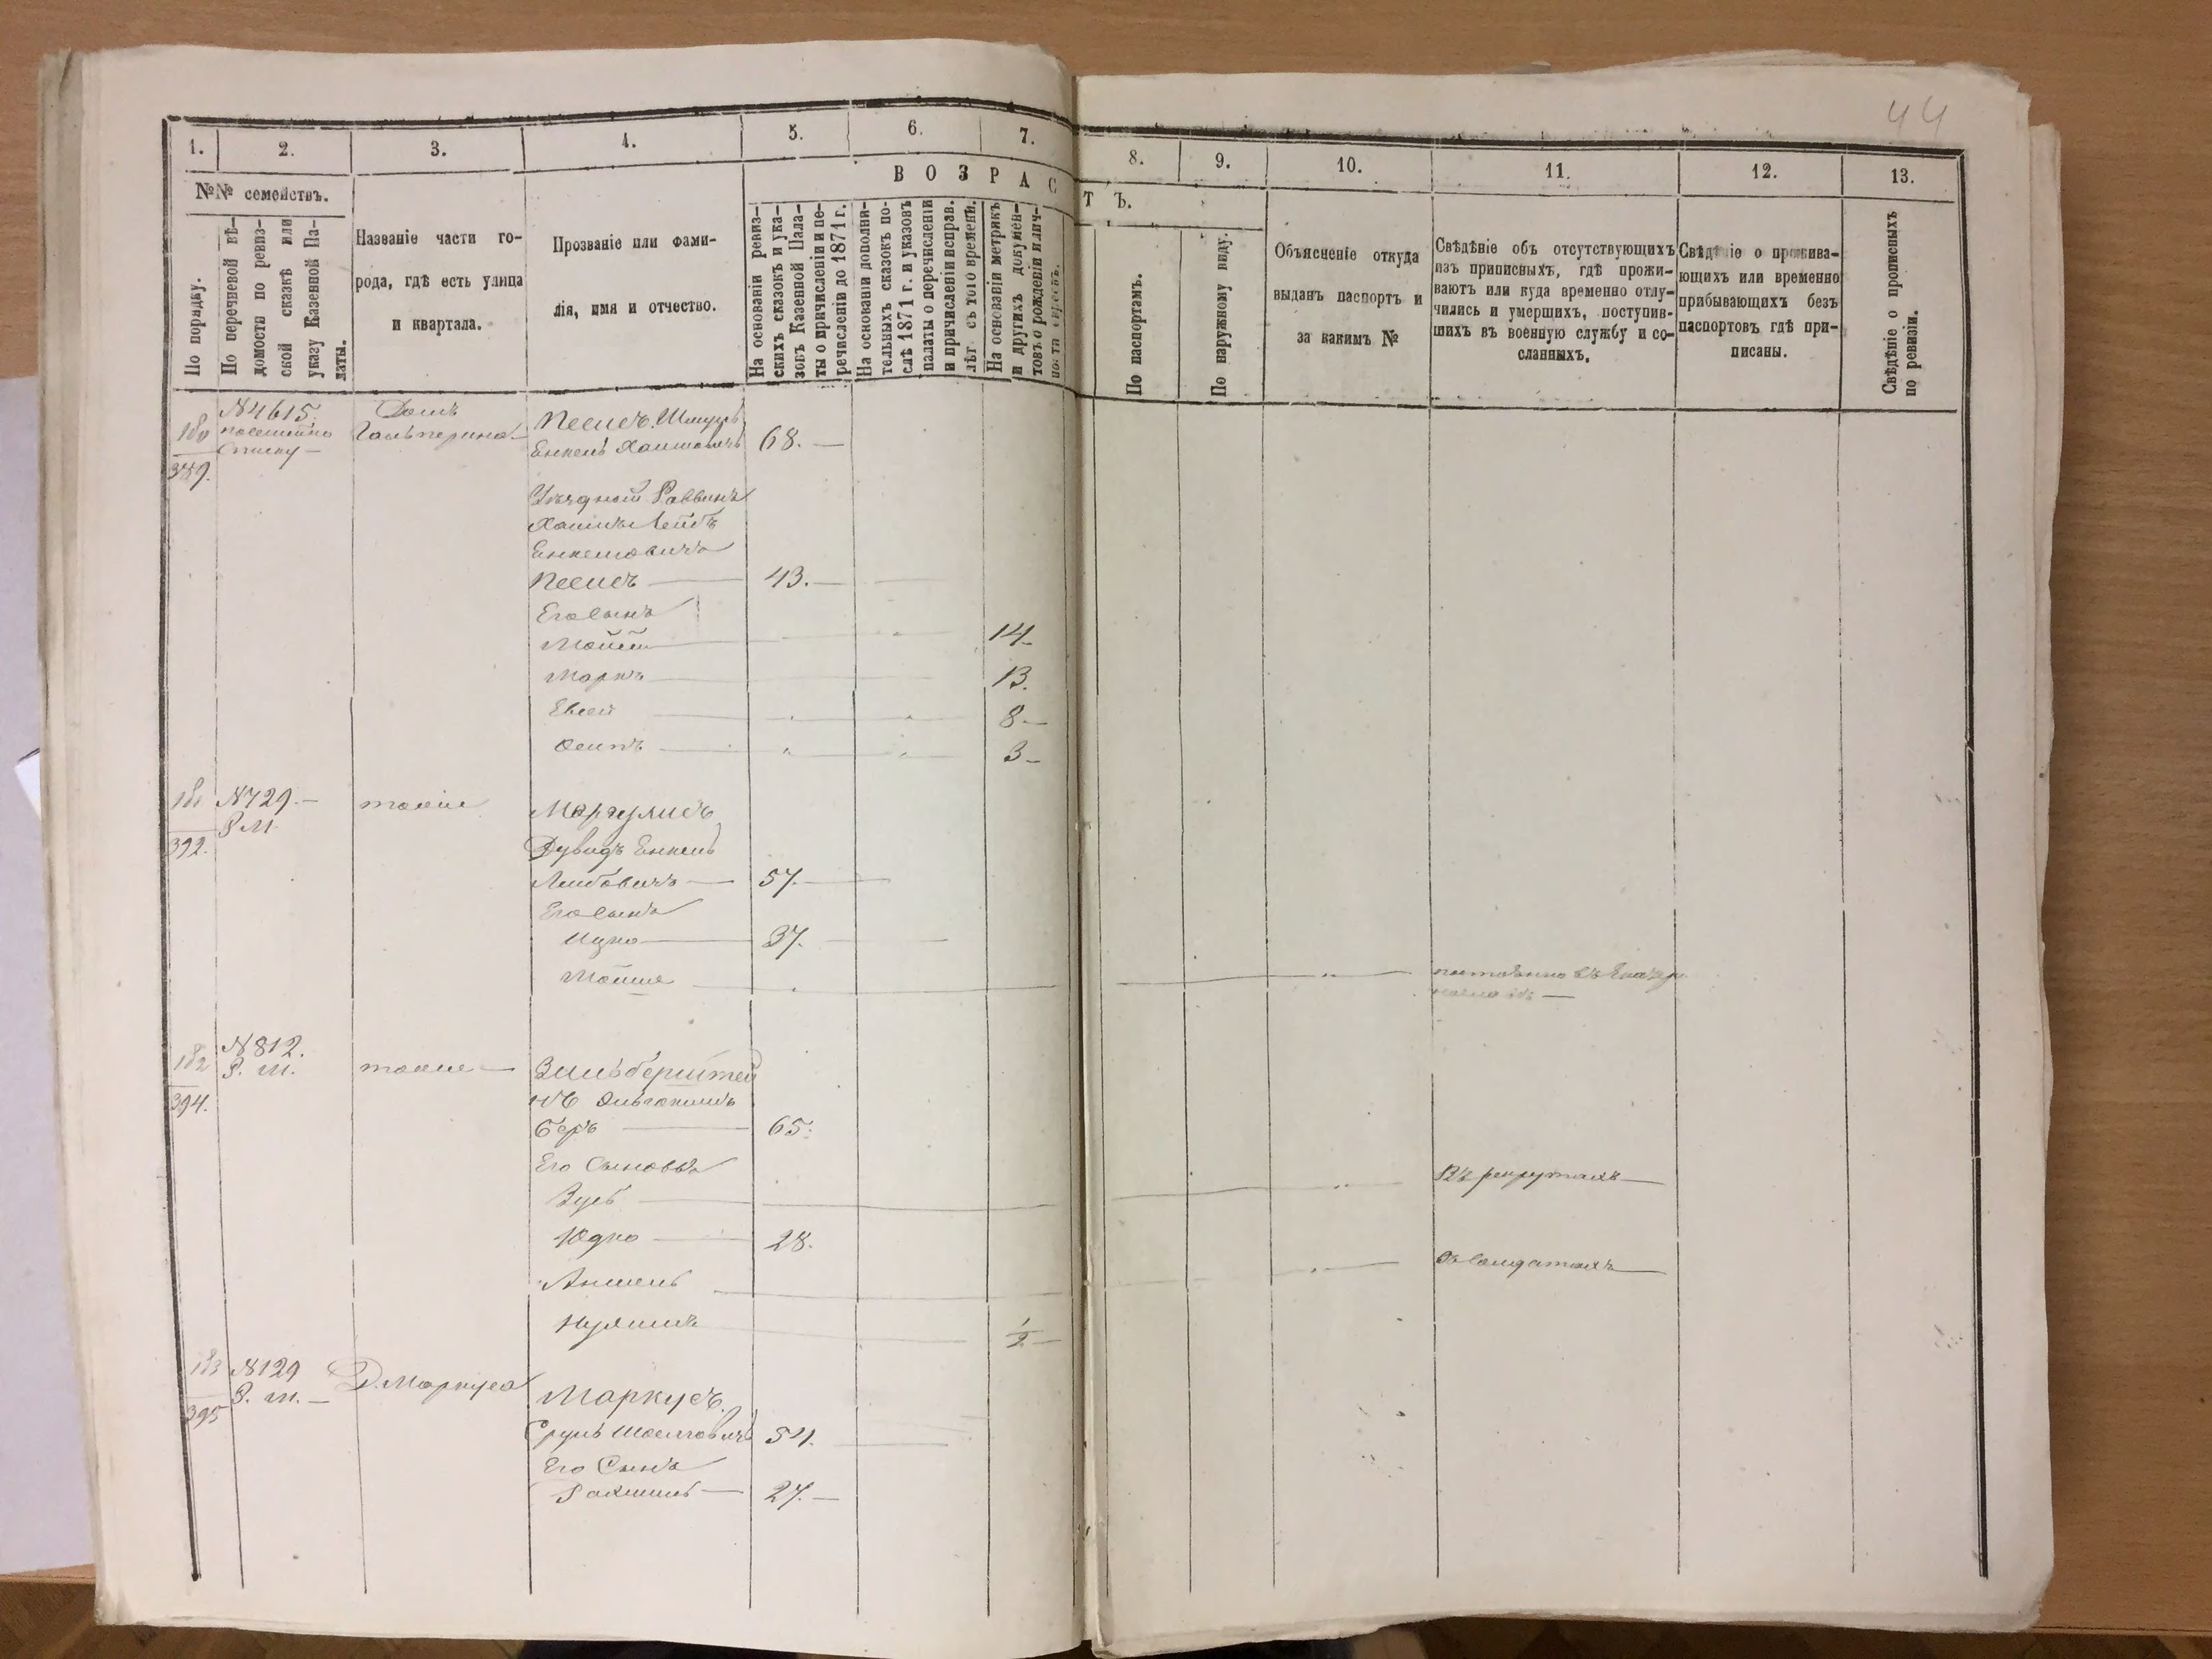 44
1. 2. 3. 4. 5. 6. 7. 8. 9. 10. 11. 12. 13.
№№ семействъ.
ВОЗРАСТЪ.
По порядку.
По перечневой вѣ-
домости по ревиз-
ской сказкѣ или
указу Казенной Па-
латы.
Названіе части го-
рода, гдѣ есть улица
и квартала.
Прозваніе или фами-
лія, имя и отчество.
На основаніи ревиз-
скихъ сказокъ и ука-
зовъ Казенной Пала-
ты о причисленіи и пе-
речисленіи до 1871 г.
На основаніи дополни-
тельныхъ сказокъ по-
слѣ 1871 г. и указовъ
палаты о перечисленіи
и причисленіи исправ.
лѣт съ того времени.
На основаніи метрикъ
и другихъ докумен-
товъ о рожденіи и лич-
По паспортамъ.
По наружному виду.
Объясненіе откуда
выданъ паспортъ и
за какимъ №
Свѣдѣніе объ отсутствующихъ
изъ приписныхъ, гдѣ прожи-
ваютъ или куда временно отлу-
чились и умершихъ, поступив-
шихъ въ военную службу и со-
сланныхъ.
Свѣдѣніе о прожива-
ющихъ или временно
прибывающихъ безъ
паспортовъ гдѣ при-
писаны.
Свѣдѣніе о прописныхъ
по ревизіи.
180 №4615 Домъ Песисъ Шмуль
389. посемейно Гальперина Енкель Хаимовичъ 68.
списку
Уѣздный Раввинъ
Хаимъ Лейбъ
Енкелевичъ
Песисъ 43.
Его сынъ
Мойше 14
Маркъ 13.
Евсей 8
Осипъ 3
181 №729. тоже Маргулисъ
392. Р. М. Дувидъ Енкель
Лейбовичъ 57.
Его сынъ
Ицко 37.
Мойше
182 №812. тоже Зильберштей
394. Р. М. нъ
Беръ 65.
Его Сыновья
Въ рекрутахъ
Юдко 28.
Аншель Въ солдатахъ
1/2
183 №129 Д. Маркуса Маркусъ
395 Р. М. Сруль 54.
Его Сынъ
27.